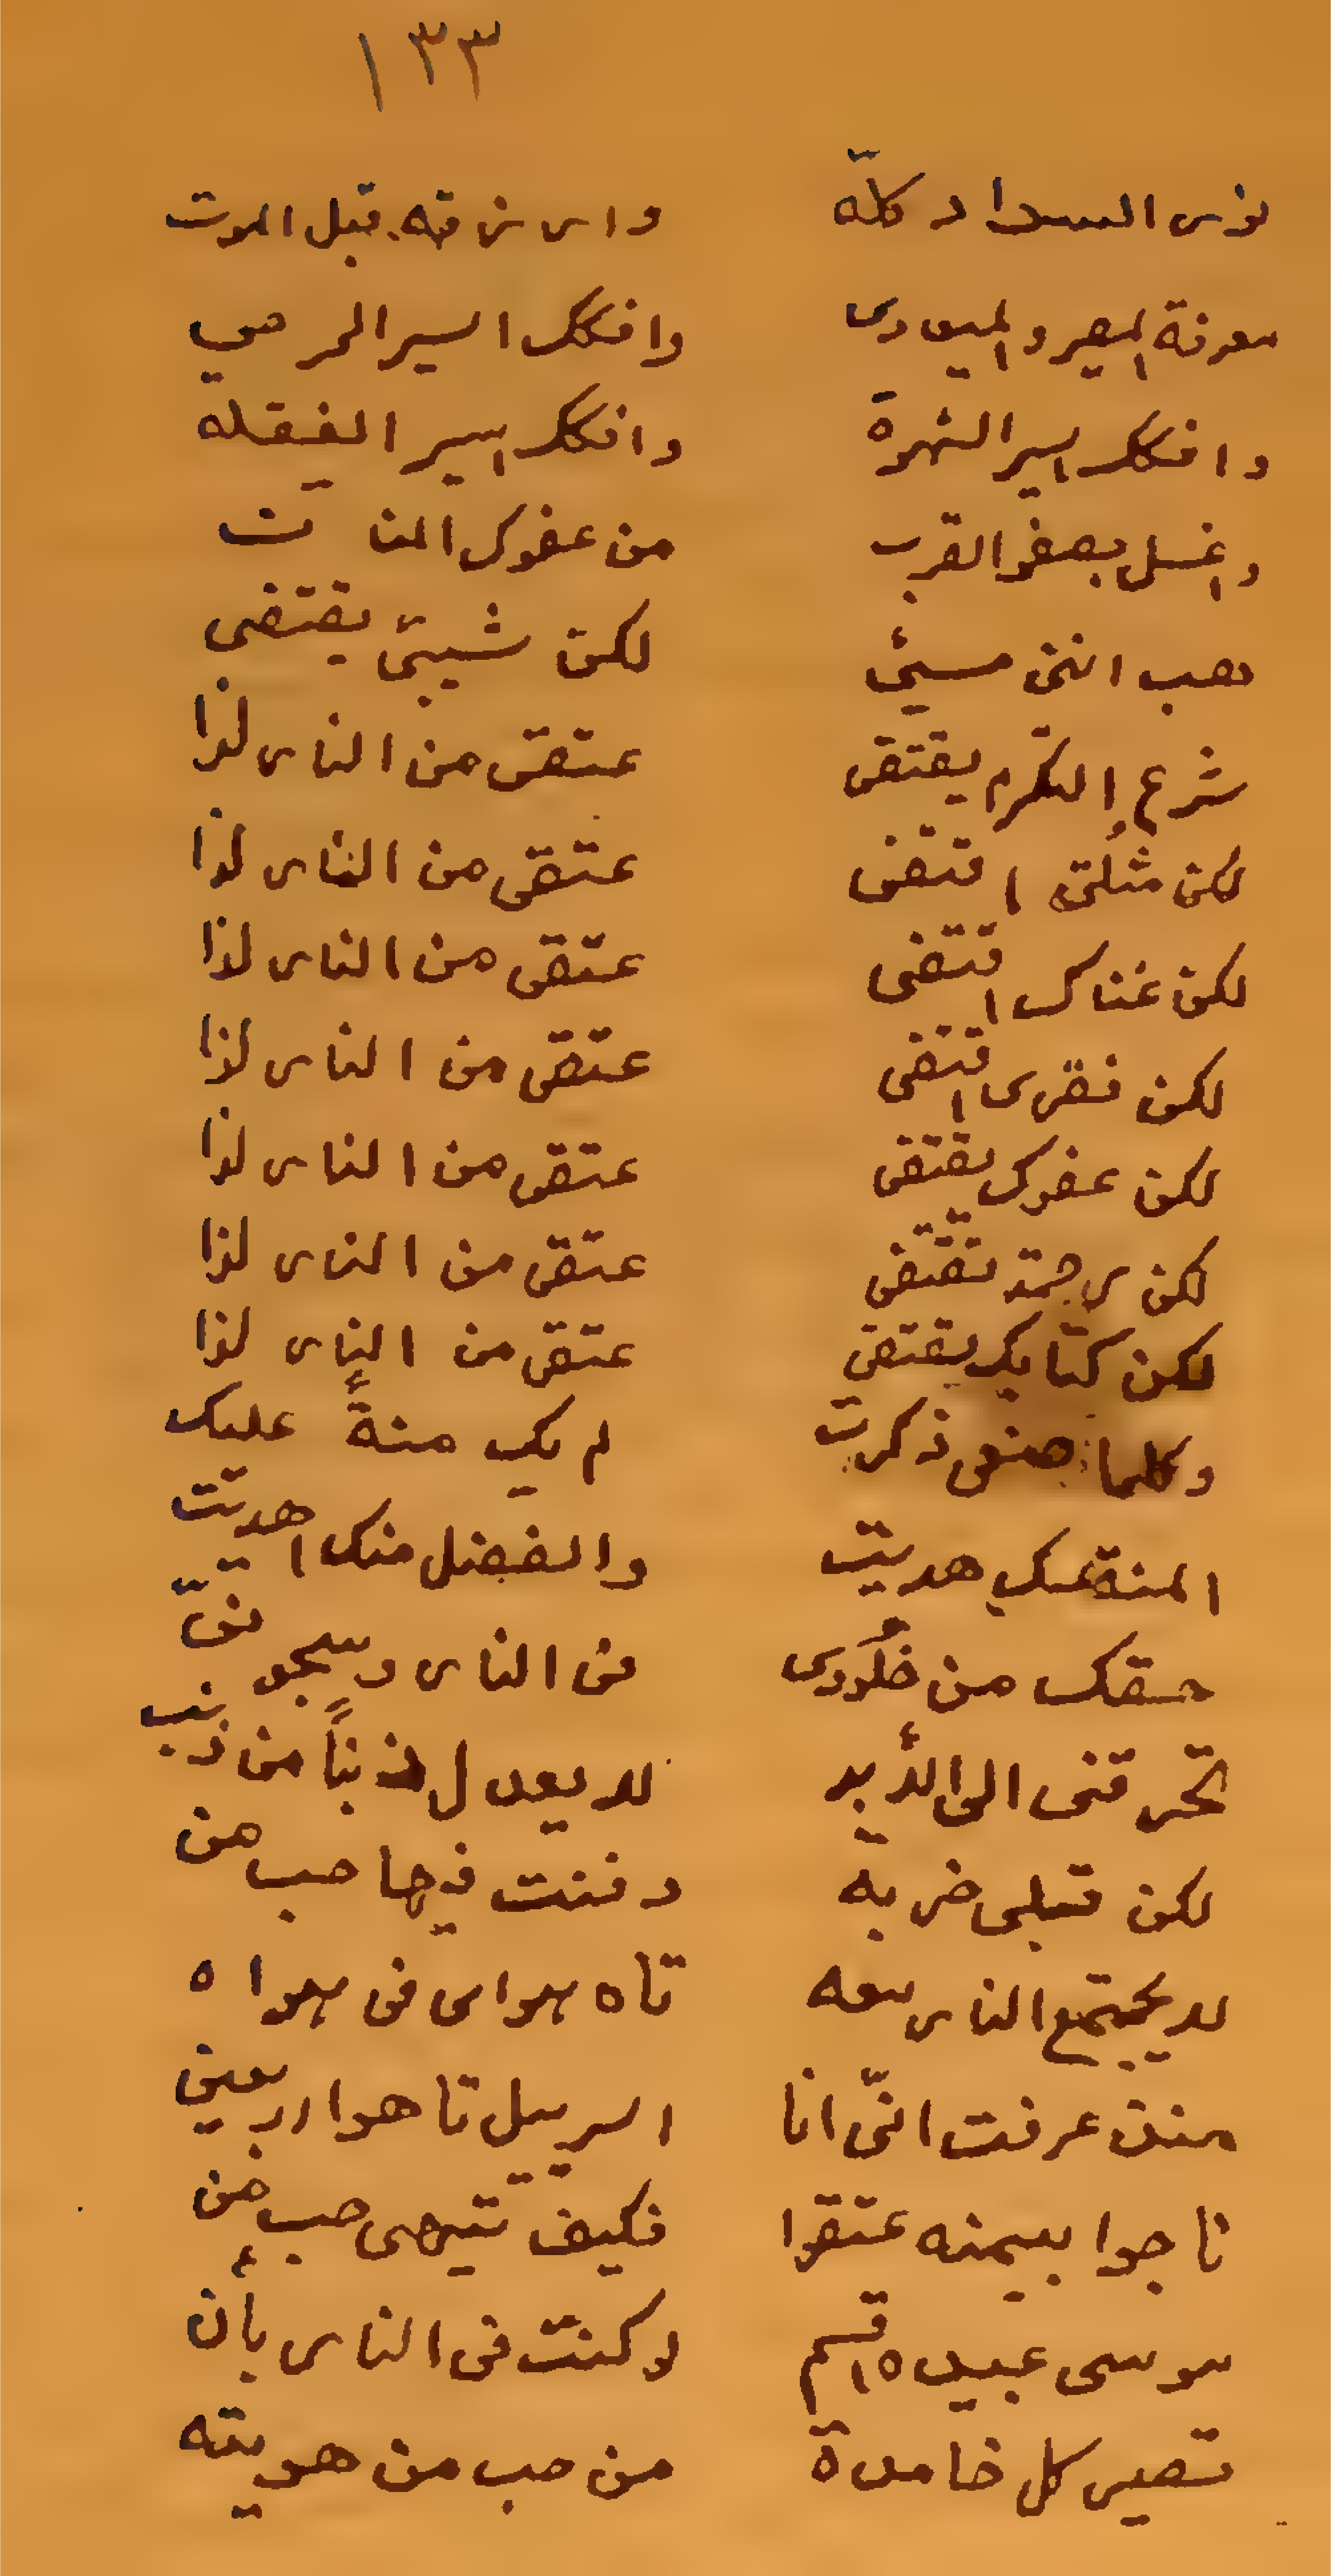 ١٣٣
نوى السداد كله وارزقه قبل الموت
معرفة المصير والميعادى وافكك اسير المرحي
وافكك اسير الشهوة وافكك اسير الغفلة
واغسل بصفو القرب من عفوك المنا
هب اننى مسئ لكن شيبتى يقتضى
شرع الكرم يقتضى عتقى من النار لذا
لكن مثلتى اقتضى عتقى من النار لذا
لكن غناك اقتضى عتقى من النار لذا
لكن فقرى اقتضى عتقى من النار لذا
لكن عفوك يقتضى عتقى من النار لذا
لكن رحمتة تقتضى عتقى من النار لذا
لكن كتابك يقتضى عتقى من النار لذا
وكلما صنعى ذكرت لم يك منةً عليك
المنة منك هديت والفضل منك اهديت
حقك من خلودى فى النار وسجو
تحرقنى الى الأبد لا يعدل ذنباً من ذنب
لكن قبلى ضربة دفنت فيها حب من
لا يجتمع النار معه تاه سواى فى هواه
منذ عرفت انّى انا اسرييل تاهوا اربعين
ناجوا بيمنه عتقوا فكيف تيهى حب من
موسى عبيده اقسم لو كنت فى النار بأن
تصير كل خامدة من حب من هويته